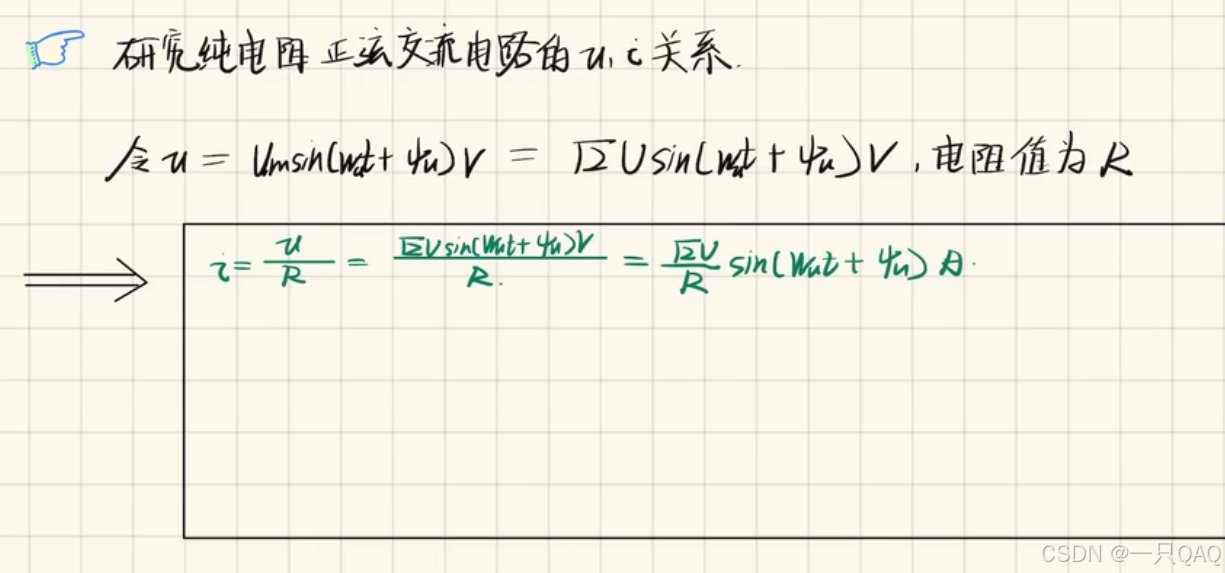 研究纯电阻正弦交流电路的u,i关系.
令u = Umsin(ωt + ψu)V = √2Usin(ωt + ψu)V,电阻值为R
i = u/R = √2Usin(ωut + ψu)V/R. = √2U/R sin(ωut + ψu) A.
CSDN @一只QAQ